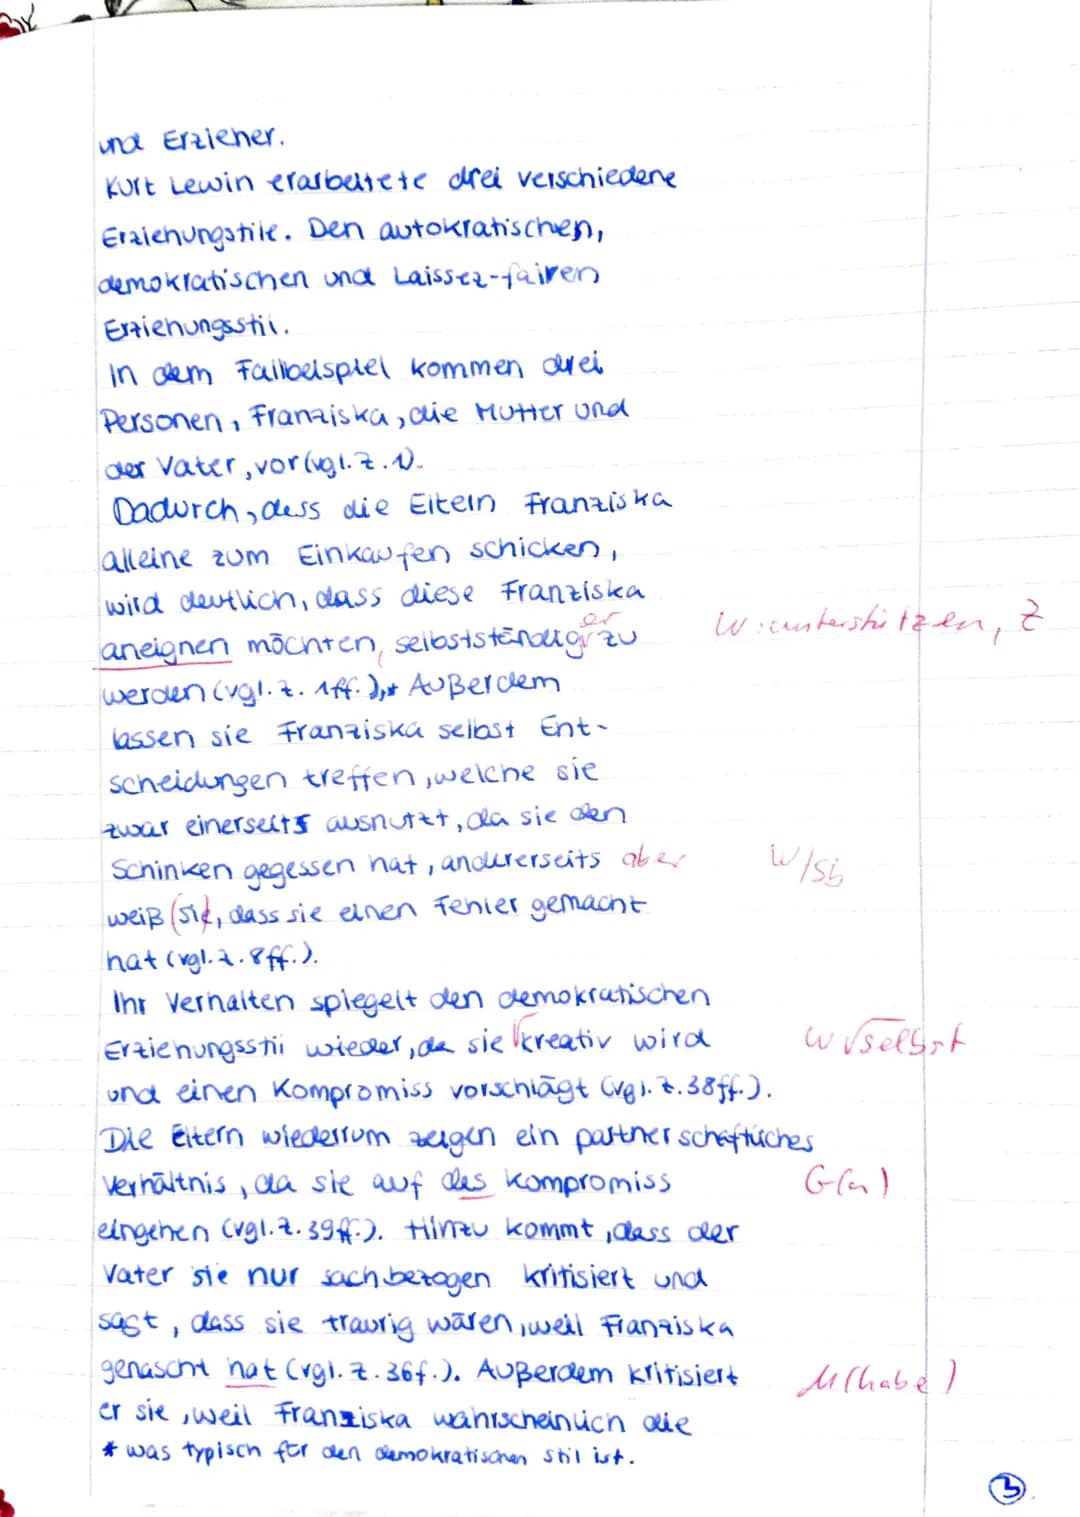 und Erzieher.
Kurt Lewin erarbeitete drei verschiedene
Erziehungstile. Den autokratischen,
demokratischen und Laissez-fairen
Erziehungsstil.
In dem Fallbeispiel kommen drei
Personen, Franziska, die Mutter und
der Vater, vor (vgl. Z. 1).
Dadurch, dass die Eltern Franziska
alleine zum Einkaufen schicken,
wird deutlich, dass diese Franziska
aneignen möchten, selbstständiger zu W: unterstützen, Z
werden (vgl. Z. 1ff.),* Außerdem
lassen sie Franziska selbst Ent-
scheidungen treffen, welche sie
zwar einerseits ausnutzt, da sie den
Schinken gegessen hat, andererseits aber W/Sb
weiß (sie, dass sie einen Fehler gemacht
hat (vgl. Z. 8ff.).
Ihr Verhalten spiegelt den demokratischen
Erziehungsstil wieder, da sie √kreativ wird W √selbst
und einen Kompromiss vorschlägt (vgl. Z. 38ff.).
Die Eltern wiederrum zeigen ein partnerschaftliches
Verhältnis, da sie auf das Kompromiss G(n)
eingehen (vgl. Z. 39ff.). Hinzu kommt, dass der
Vater sie nur sachbezogen kritisiert und
sagt, dass sie traurig wären, weil Franziska
genascht hat (vgl. Z. 36f.). Außerdem kritisiert M(habe)
er sie, weil Franziska wahrscheinlich die
* was typisch für den demokratischen Stil ist.
3